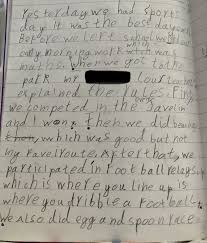 Yesterday we had sports
day. It was the best day ever.
Before we left school we
early morning work which was
maths. when we got to the
park mr our teacher
explained the rules. First
we competed in the Javelin
and I won. then we did
then, which was good but not
my faveiroute. After that, we
participated in football relays
which is where you line up
where you dribble a football
We also did egg and spoon race